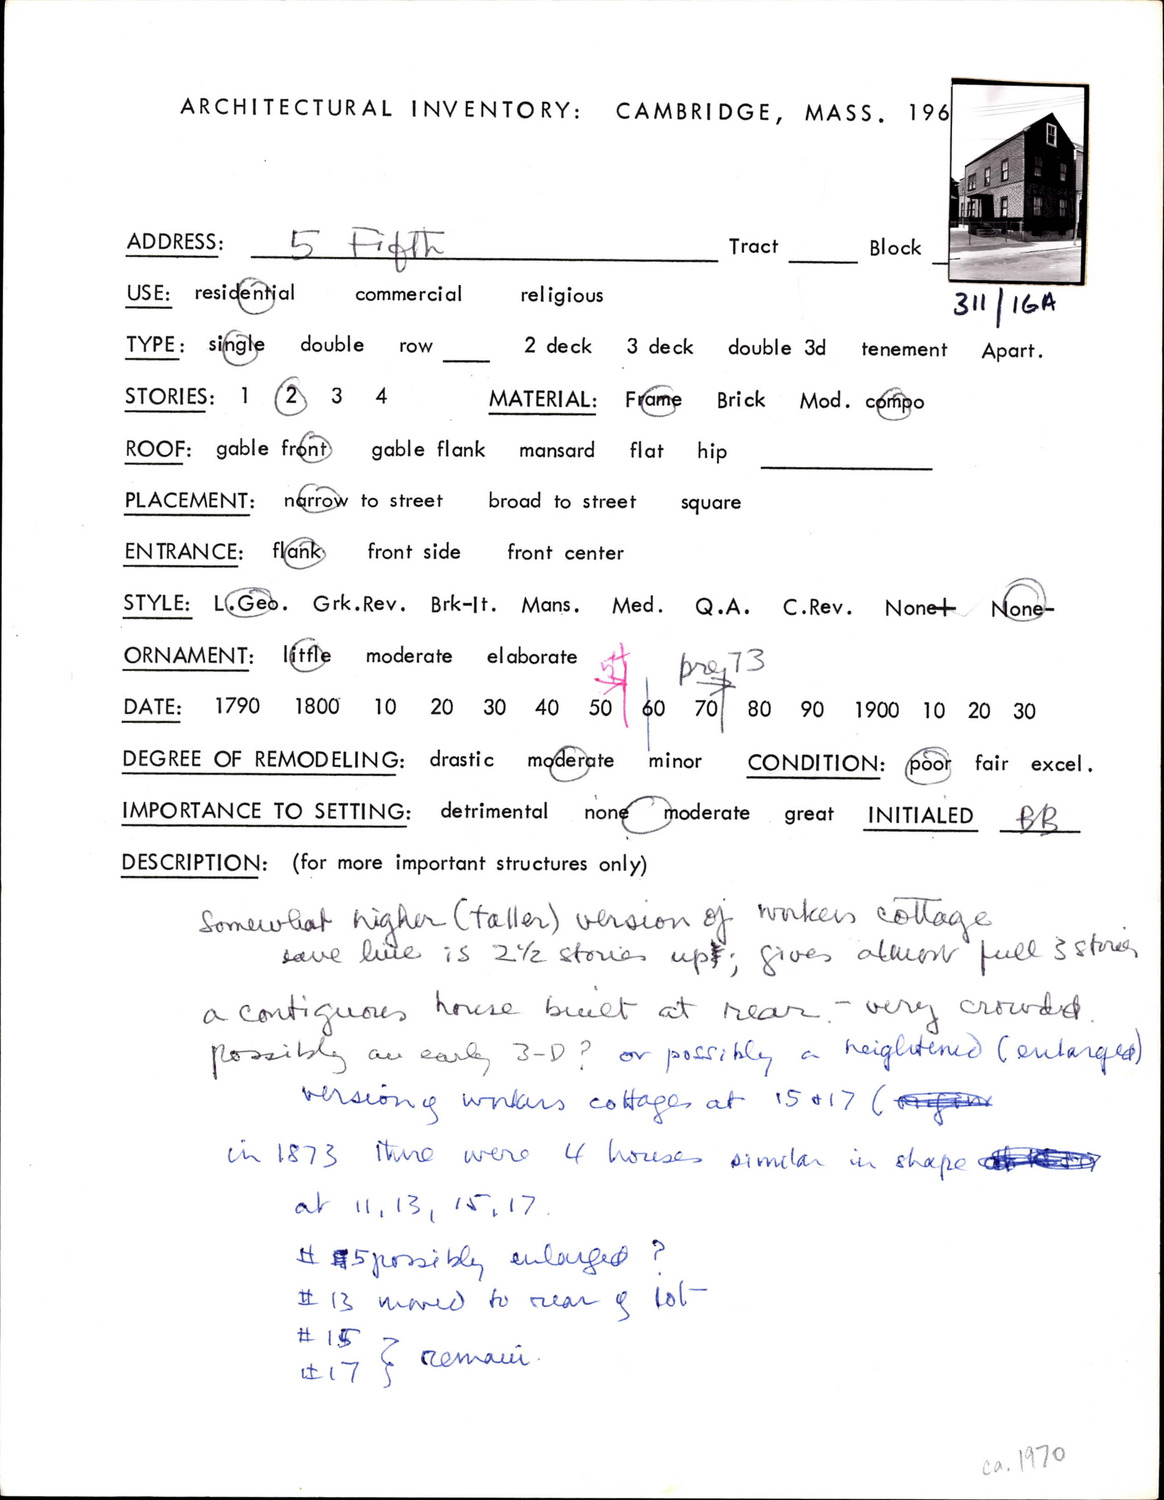 ARCHITECTURAL INVENTORY: CAMBRIDGE, MASS. 196
ADDRESS: 5 Fifth Tract Block
311/16A
USE: residential commercial religious
TYPE: single double row 2 deck 3 deck double 3d tenement Apart.
STORIES: 1 2 3 4 MATERIAL: Frame Brick Mod. compo
ROOF: gable front gable flank mansard flat hip
PLACEMENT: narrow to street broad to street square
ENTRANCE: flank front side front center
STYLE: L.Geo. Grk.Rev. Brk-It. Mans. Med. Q.A. C.Rev. None+ None-
ORNAMENT: little moderate elaborate 54 pre 73
DATE: 1790 1800 10 20 30 40 50 60 70 80 90 1900 10 20 30
DEGREE OF REMODELING: drastic moderate minor CONDITION: poor fair excel.
IMPORTANCE TO SETTING: detrimental none moderate great INITIALED BB
DESCRIPTION: (for more important structures only)
Somewhat higher (taller) version of workers cottage
eave line is 2½ stories up; gives almost full 3 stories
a contiguous house built at rear. - very crowded.
possibly an early 3-D? or possibly a heightened (enlarged)
version of workers cottages at 15+17 (
in 1873 there were 4 houses similar in shape
at 11, 13, 15, 17.
# 5 possibly enlarged?
# 13 moved to rear of lot
# 15
# 17 } remain.
ca. 1970